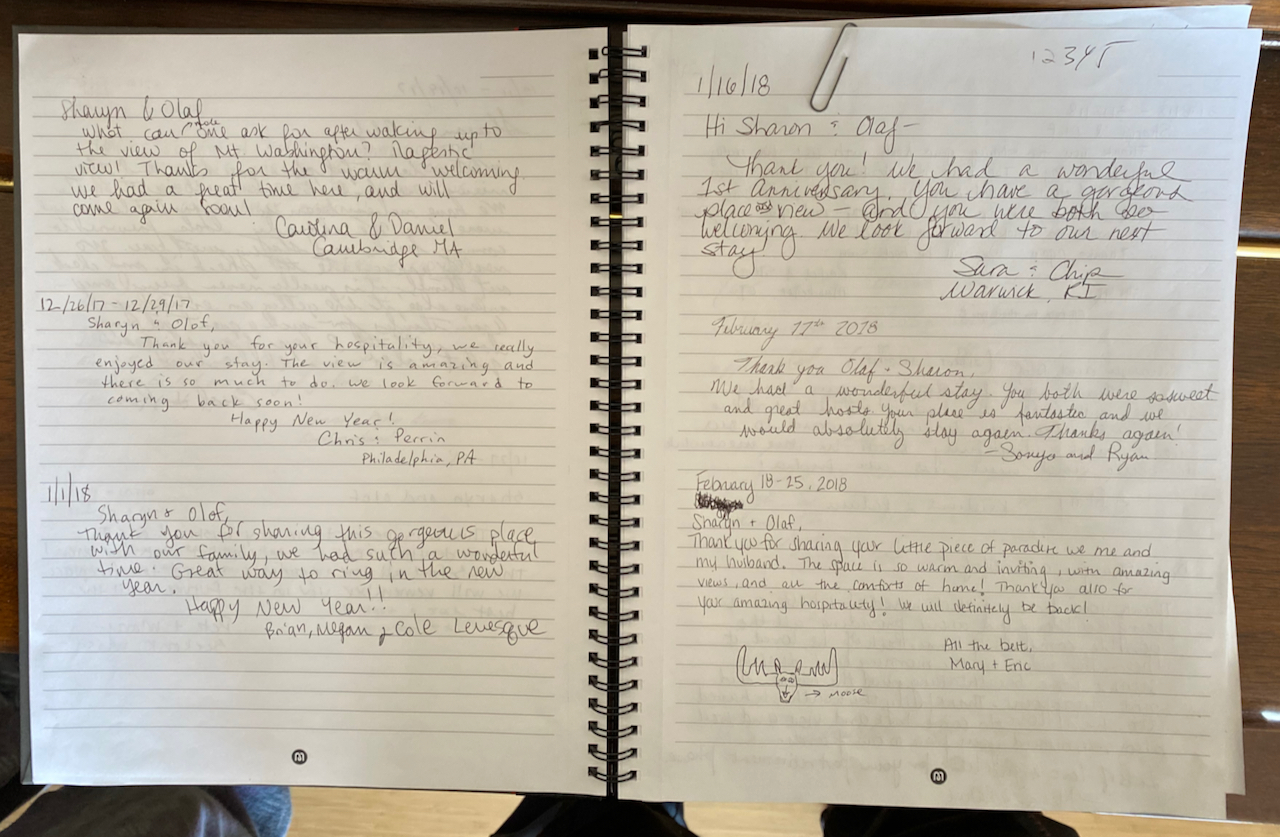 Sharyn & Olaf
What can one ask for after waking up to
the view of Mt. Washington? Magestic
view! Thanks for the warm welcoming
we had a great time here, and will
come again soon!
Carolina & Daniel
Cambridge MA
12/26/17 - 12/29/17
Sharyn & Olof,
Thank you for your hospitality, we really
enjoyed our stay. The view is amazing and
there is so much to do. We look forward to
coming back soon!
Happy New Year!
Chris & Perrin
Philadelphia, PA
1/1/18
Sharyn & Olof,
Thank you for sharing this gorgeous place
with our family, we had such a wonderful
time. Great way to ring in the new
year.
Happy New Year!!
Brian, Megan & Cole Levesque
12345
1/16/18
Hi Sharon & Olaf-
Thank you! We had a wonderful
1st anniversary. You have a gorgeous
place and view - and you were both so
welcoming. We look forward to our next
stay.
Sara & Chip
Warwick, RI
February 17th 2018
Thank you Olaf + Sharon,
We had a wonderful stay. You both were so sweet
and great hosts. Your place is fantastic and we
would absolutely stay again. Thanks again!
- Sonya and Ryan
February 18-25, 2018
Sharyn + Olaf,
Thank you for sharing your little piece of paradise we me and
my husband. The space is so warm and inviting, with amazing
views, and all the comforts of home! Thank you also for
your amazing hospitality! We will definitely be back!
All the best,
Mary + Eric
→ moose